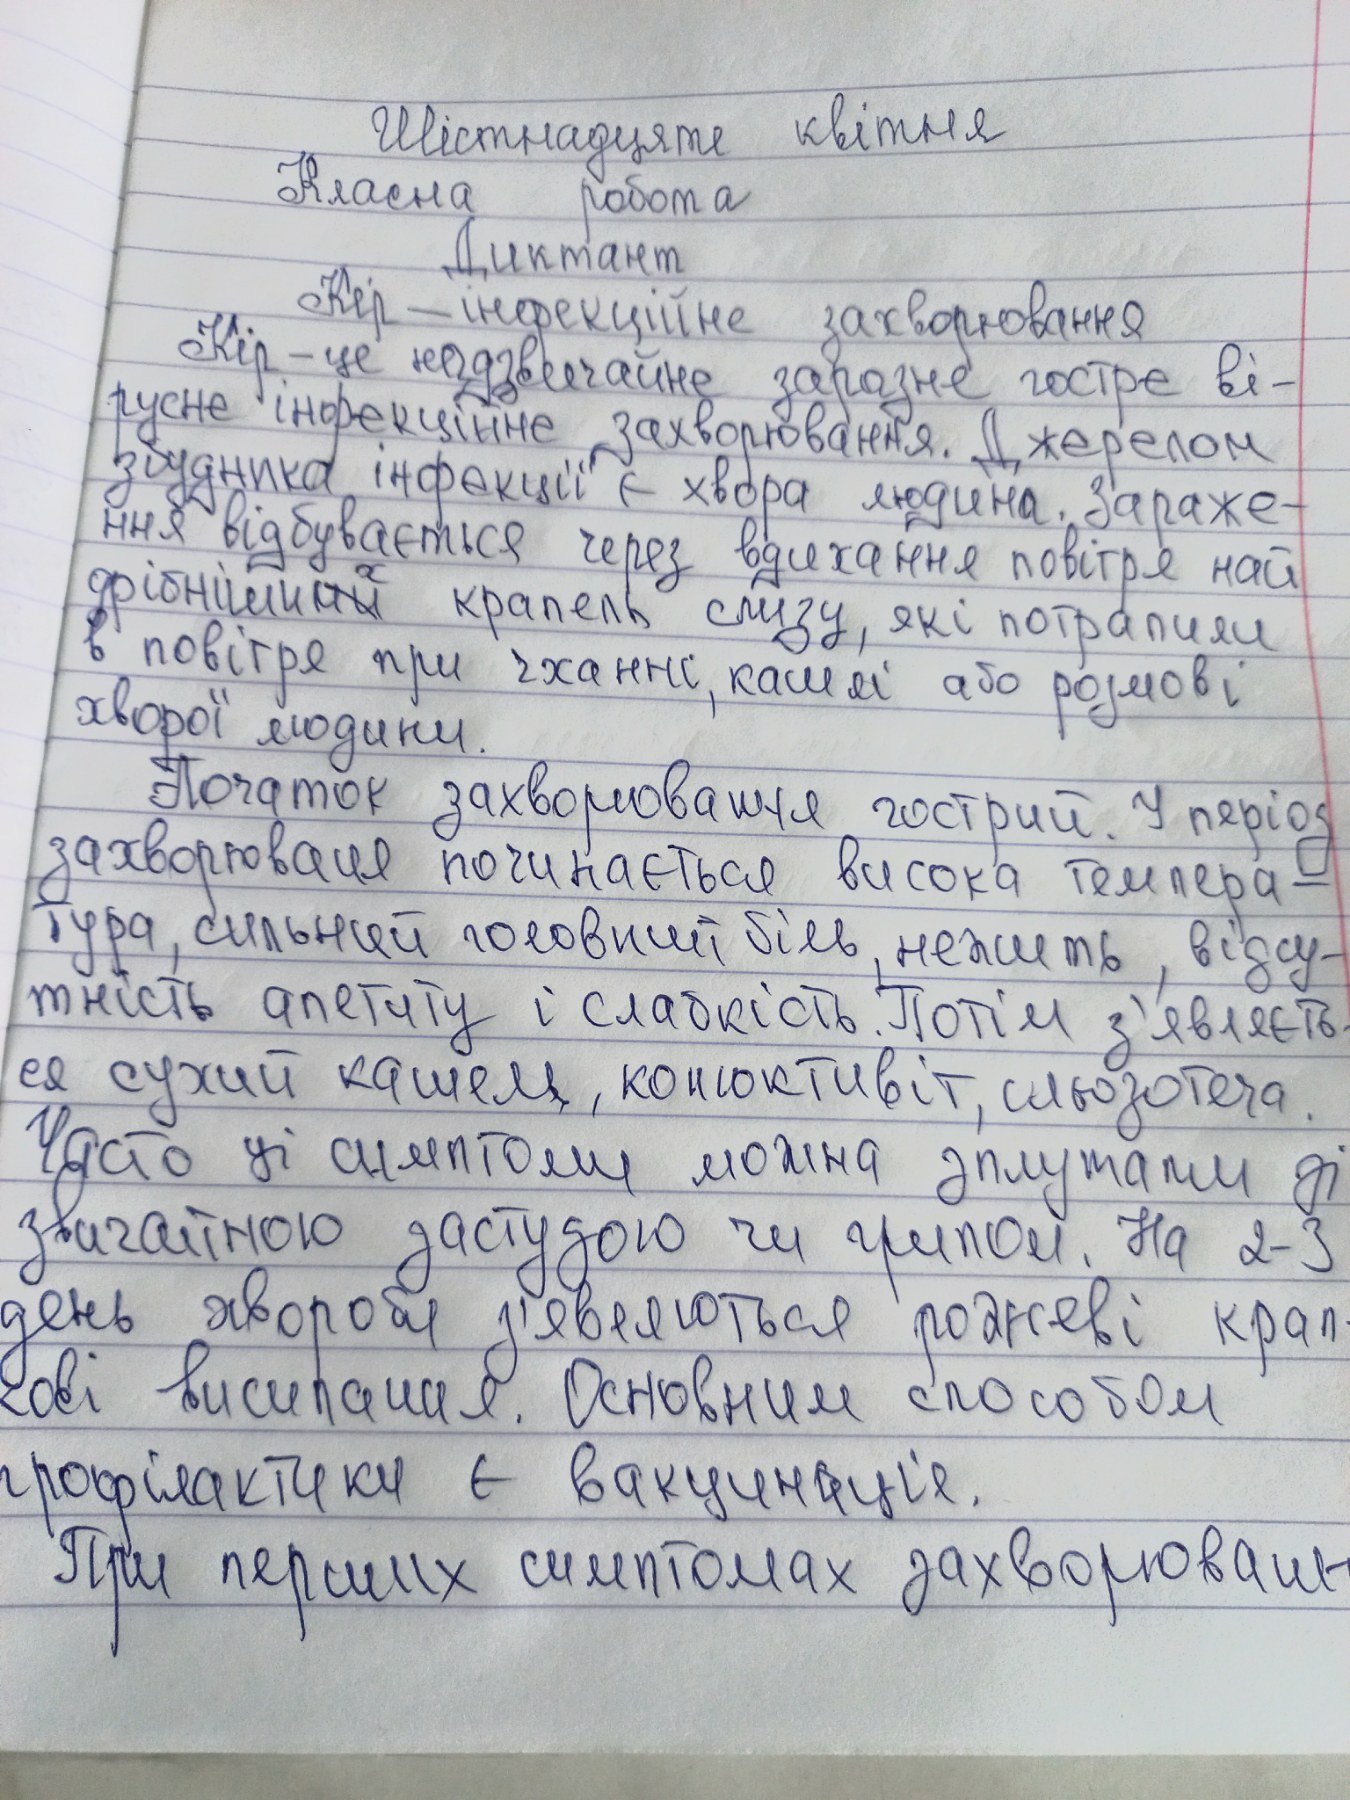 Шістнадцяте квітня
Класна робота
Диктант
Кір – інфекційне захворювання
Кір – це надзвичайне заразне гостре ві-
русне інфекційне захворювання. Джерелом
збудника інфекції є хвора людина. Зараже-
ння відбувається через вдихання повітря най
дрібніших крапель слизу, які потрапили
в повітря при чханні, кашлі або розмові
хворої людини.
Початок захворювання гострий. У період
захворювання починається висока темпера-
тура, сильний головний біль, нежить, відсу-
тність апетиту і слабкість. Потім з'являєть-
ся сухий кашель, конюктивіт, сльозотеча.
Часто ці симптоми можна сплутати зі
звичайною застудою чи грипом. На 2-3
день хвороби з'являються рожеві крап-
кові висипання. Основним способом
профілактики є вакцинація.
При перших симптомах захворюванн